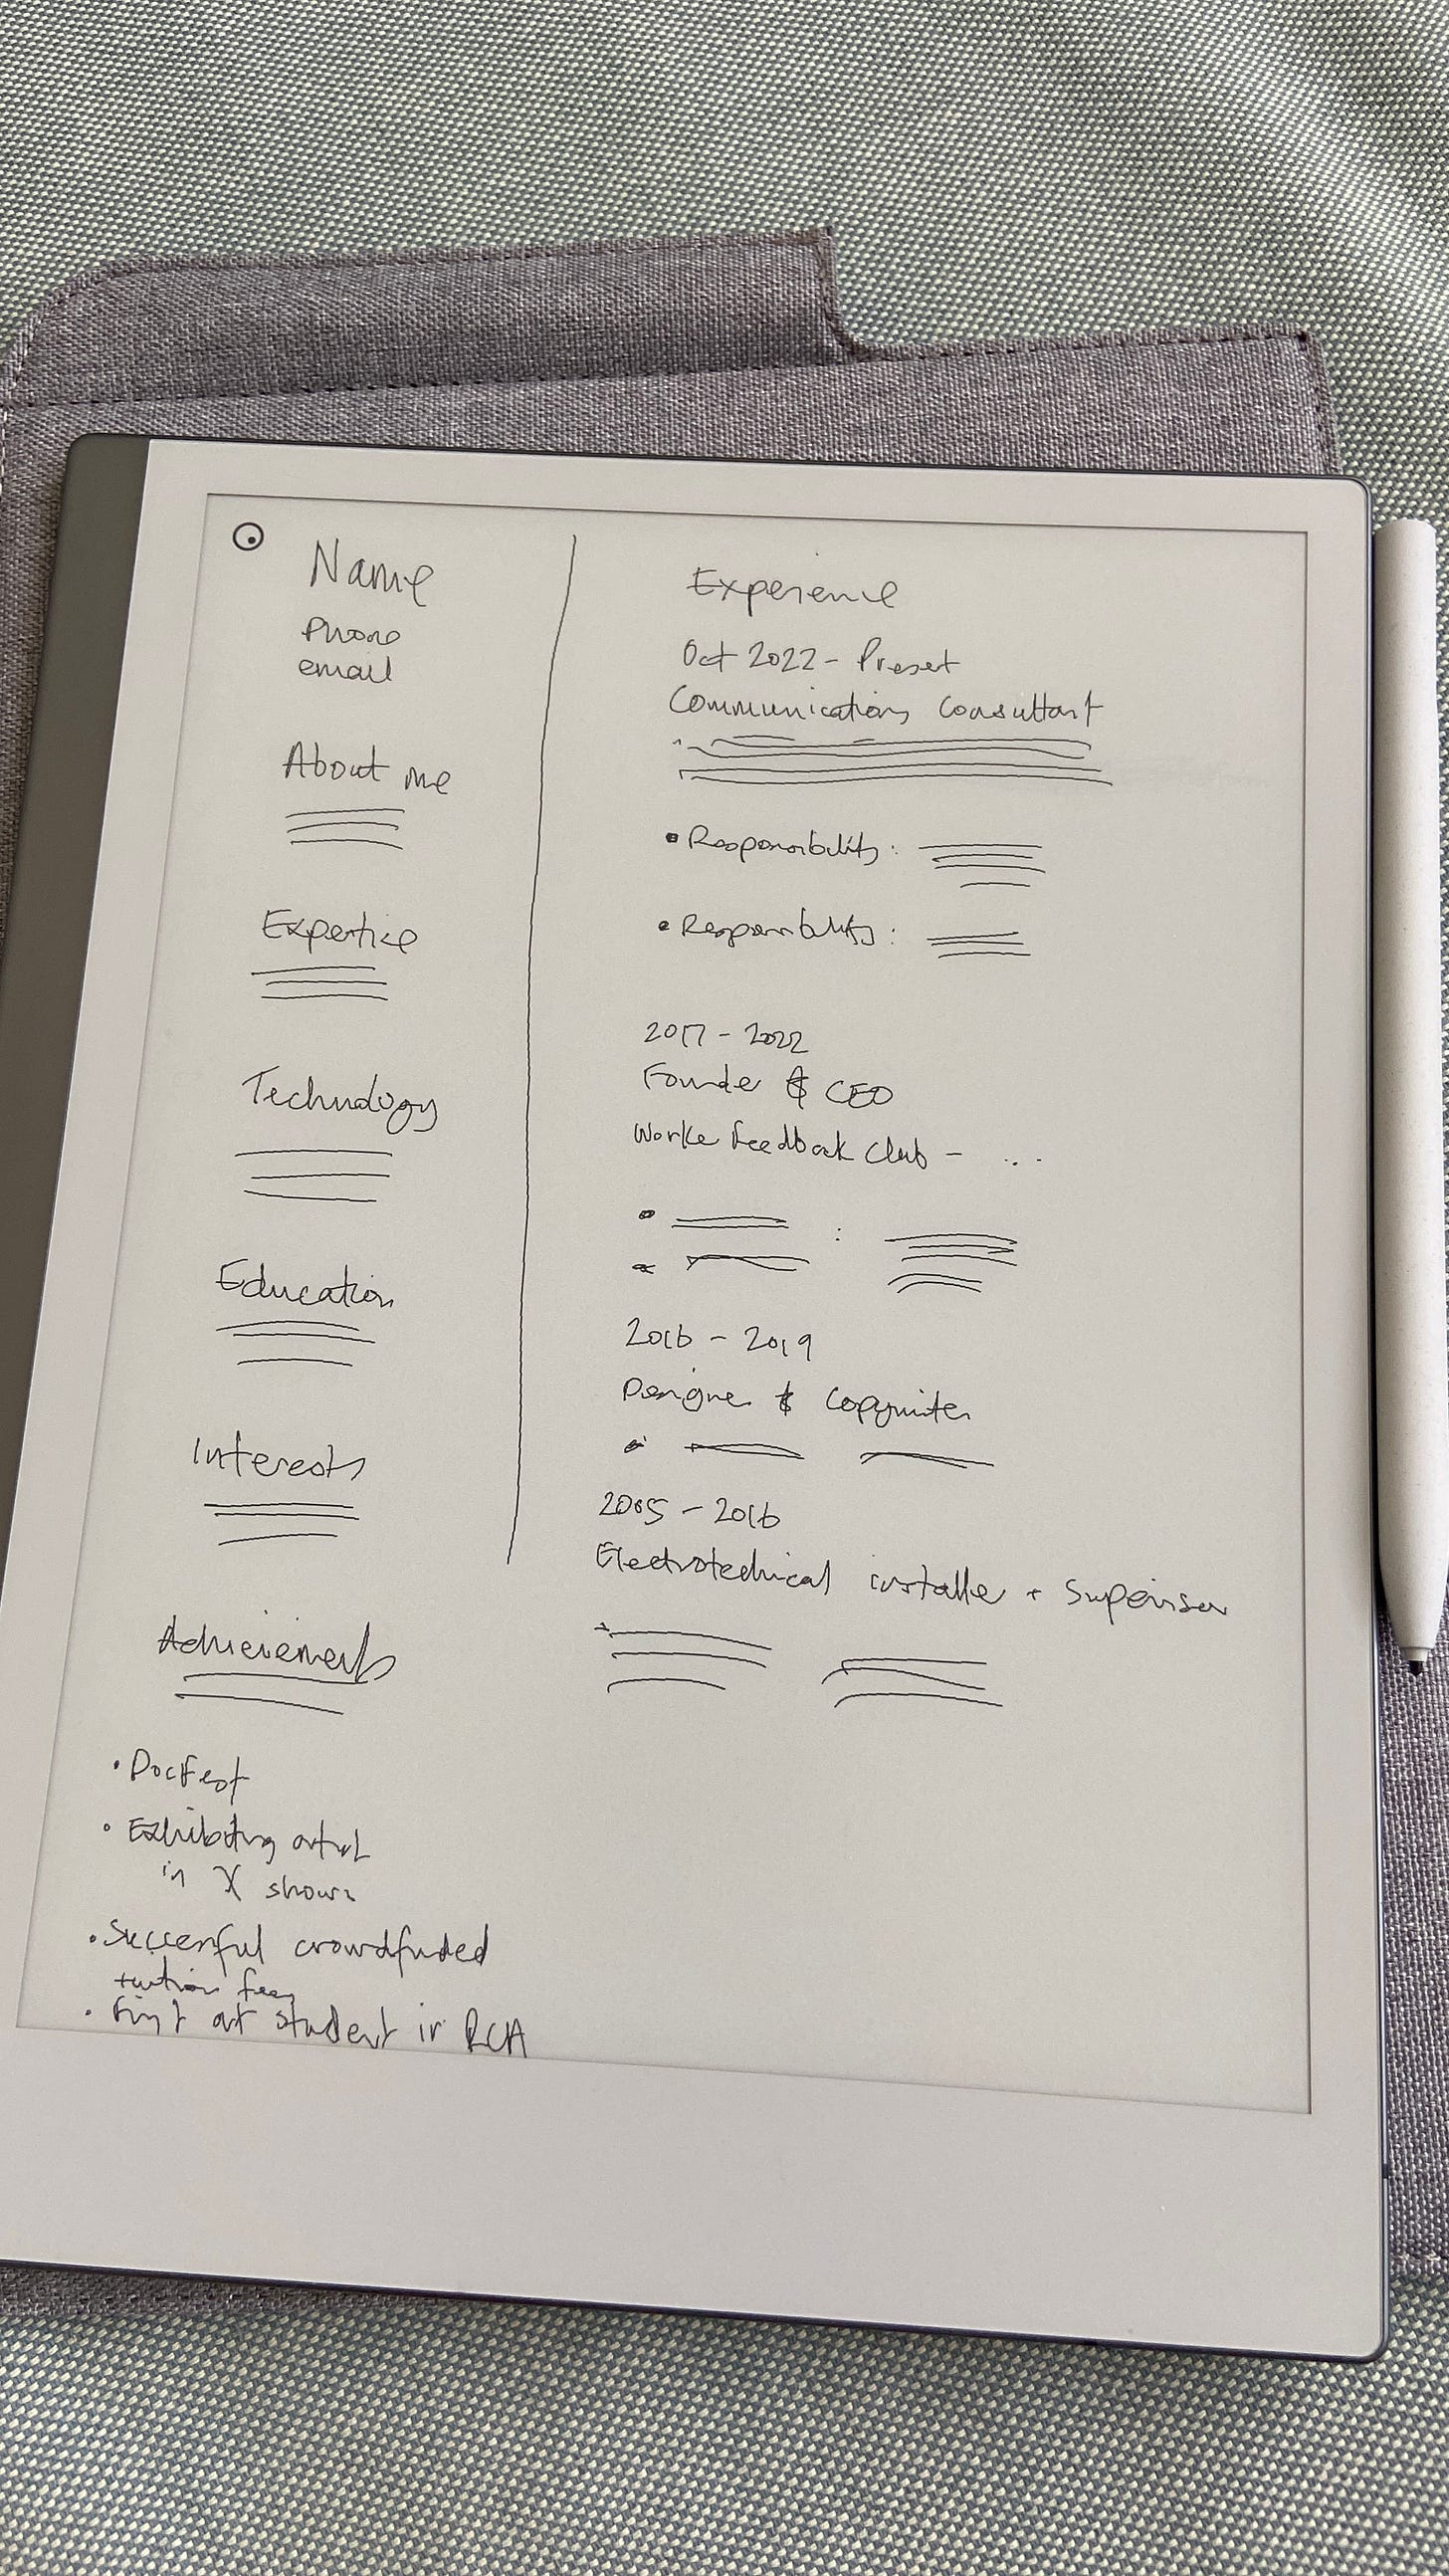 Name
Phone
email
About me
Expertise
Technology
Education
Interests
Achievements
• DocFest
• Exhibiting artist
in X shows
• Successful crowdfunded
tuition fees
• First art student in RCA
Experience
Oct 2022 - Present
Communications Consultant
• Responsibility:
• Responsibility:
2017 - 2022
Founder & CEO
Worker Feedback Club - ...
2016 - 2019
Designer & Copywriter
2005 - 2016
Electrotechnical installer + Supervisor